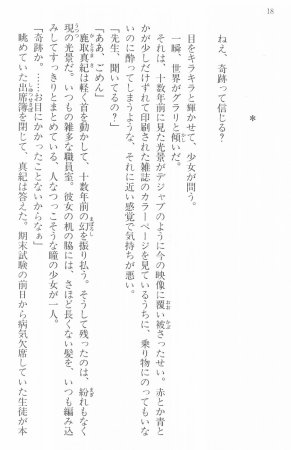 18
*
ねえ、奇跡って信じる?
目をキラキラと輝かせて、少女が問う。
一瞬、世界がグラリと傾いだ。
それは、十数年前に見た光景がデジャブのように今の映像に覆い被さったせい。赤とか青と
かが少しだけずれて印刷された雑誌のカラーページを見ているうちに、乗り物にのってもいな
いのに酔ってしまうような、それに近い感覚で気持ちが悪い。
「先生、聞いてるの?」
「ああ、ごめん」
鹿取真紀は軽く首を動かして、十数年前の幻を振り払う。そうして残ったのは、紛れもなく
現の光景だ。いつもの雑多な職員室。彼女の机の脇には、さほど長くない髪を、いつも編み込
みしてすっきりとまとめている、人なつっこそうな瞳の少女が一人。
「奇跡か。……お目にかかったことないからなぁ」
眺めていた出席簿を閉じて、真紀は答えた。期末試験の前日から病気欠席していた生徒が本